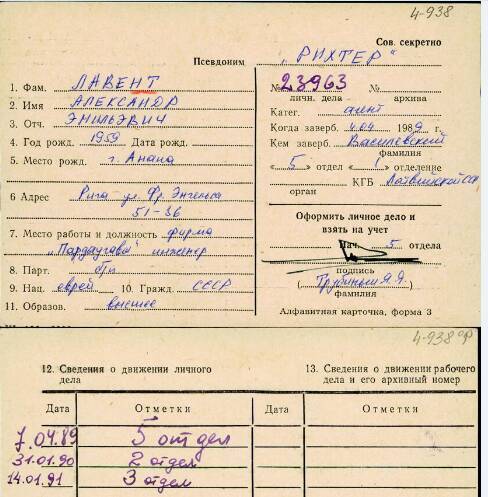 4-938
Сов. секретно
Псевдоним „РИХТЕР"
1. Фам. ЛАВЕНТ
2. Имя АЛЕКСАНДР
3. Отч. ЭМИЛЬЕВИЧ
4. Год рожд. 1959 Дата рожд.
5. Место рожд. г. Анапа
6 Адрес Рига ул Фр. Энгельса
51-36
7. Место работы и должность фирма
„Пардаугава" инженер
8. Парт. б/п
9. Нац. еврей 10. Гражд. СССР
11. Образов. высшее
№ 23963 №
личн. дела архива
Катег. агент
Когда заверб. 4.04 1989 г.
Кем заверб. Василевский
фамилия
« 5 » отдел « 1 » отделение
КГБ Латвийской ССР
орган
Оформить личное дело и
взять на учет
Нач. 5 отдела
подпись
( Трубиньш Я.Я. )
фамилия
Алфавитная карточка, форма 3
4-938 ор
12. Сведения о движении личного
дела
13. Сведения о движении рабочего
дела и его архивный номер
Дата Отметки Дата Отметки
7.04.89 5 отдел
31.01.90 2 отдел
14.01.91 3 отдел